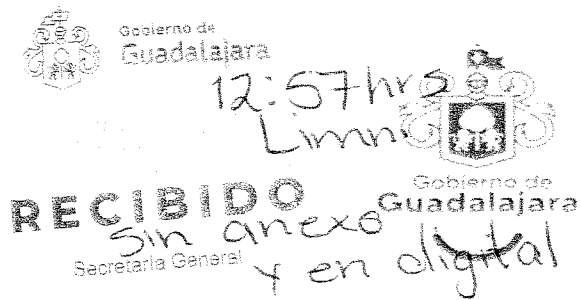 Gobierno de
Guadalajara
12:57 hrs
Gobierno de
Guadalajara
RECIBIDO
Sin anexo
Secretaría General
y en digital